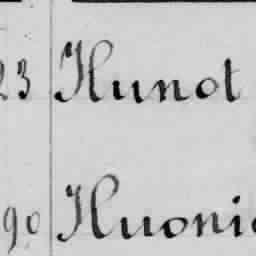 23 Hunot
90 Huoni